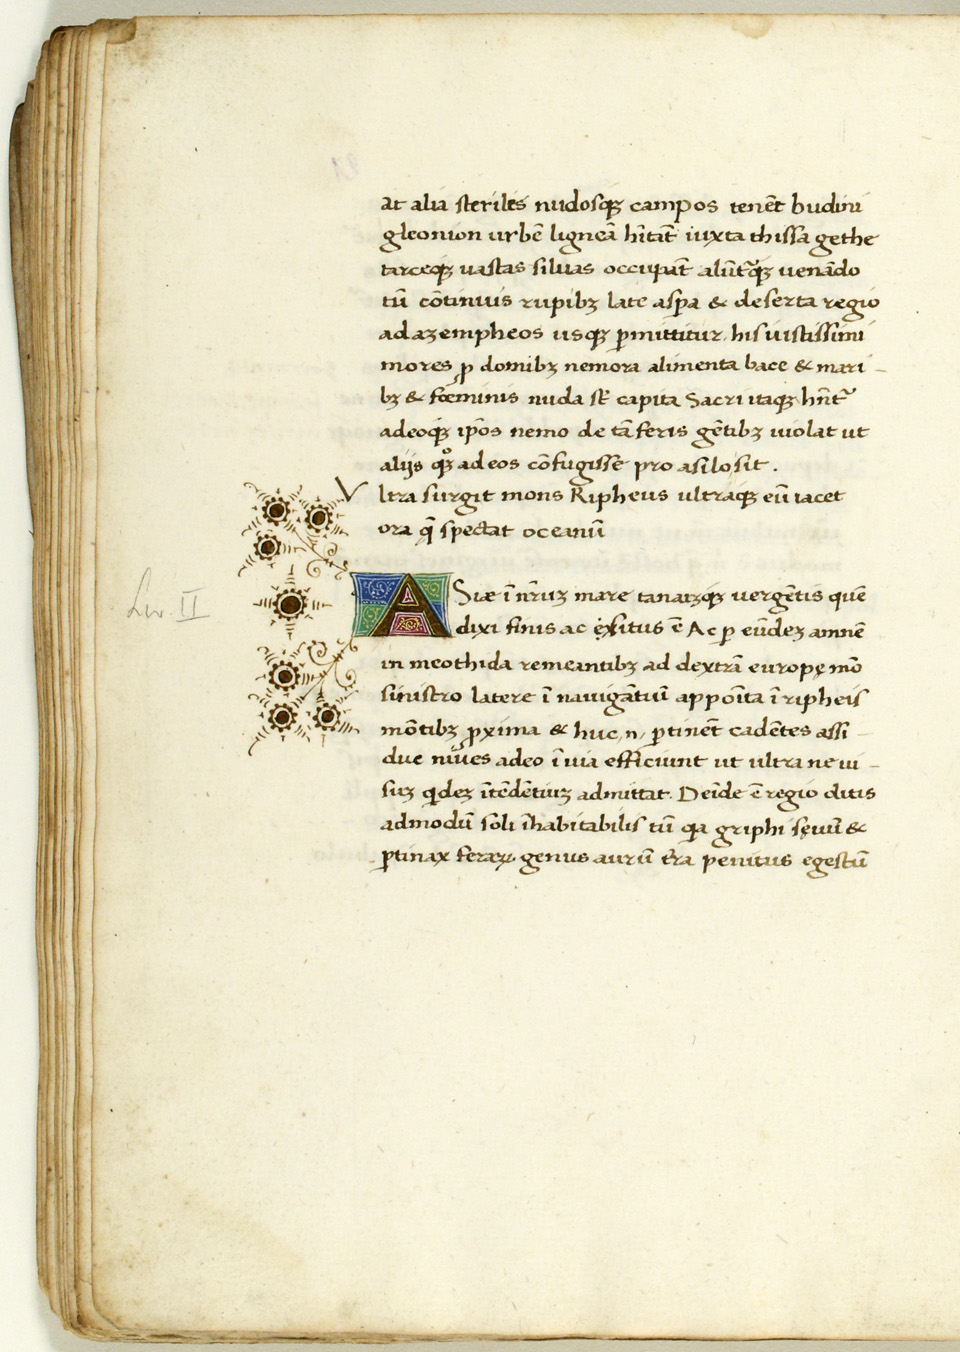 at alia steriles nudosqꝫ campos tenẽt budini
gleonion urbẽ ligneã hĩtãt iuxta thissa gethe
tarceqꝫ uastas siluas occupãt alũtqꝫ uenãdo
tũ cõtinuis rupibꝫ late aspa & deserta regio
ad azempheos usqꝫ ꝑmittitur his uistissimi
mores ꝓ domibꝫ nemora alimenta bace & mari-
bꝫ & fœminis nuda st̃ capita Sacri itaqꝫ hñt᷑
adeoqꝫ ip̃os nemo de tã feris gẽtibꝫ uiolat ut
alijs qꝫ ad eos cõfugissẽ pro asilo sit.
Vltra surgit mons Ripheus ultraqꝫ eũ iacet
ora q̃ spectat oceanũ
Liv. II
ASiæ ĩ nr̃uꝫ mare tanaiꝫqꝫ uergẽtis quẽ
dixi finis ac exitus ẽ Ac ꝑ eũdeꝫ amnẽ
in meothida remeantibꝫ ad dextrã europę mõ
sinistro latere ĩ nauigãtiũ appoĩta ĩ ripheis
mõtibꝫ ꝓxima & huc .n. ꝑtinẽt cadẽtes assi-
due niues adeo ĩ uia efficiunt ut ultra ne ui-
suꝫ qdeꝫ ĩtẽdẽtiuꝫ admittat. Deĩde ẽ regio ditis
admodũ soli ĩhabitabilis tũ qa griphi sęuũ &
ꝑtinax feraꝝ genus aurũ t̃ra penitus egestũ